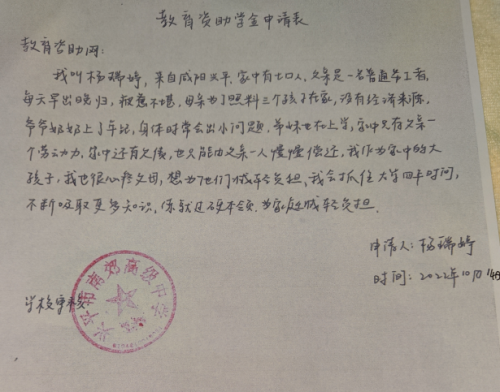 教育资助学金申请表
教育资助网:
我叫杨瑞婷,来自咸阳兴平,家中有七口人,父亲是一名普通务工者,
每天早出晚归,疲惫不堪,母亲为了照料三个孩子在家,没有经济来源,
爷爷奶奶上了年纪,身体时常会出小问题,弟妹也在上学,家中只有父亲一
个劳动力,家中还有欠债,也只能由父亲一人慢慢偿还,我作为家中的大
孩子,我也很心疼父母,想为他们减轻负担,我会抓住大学四年时间,
不断吸取更多知识,练就过硬本领,为家庭减轻负担.
申请人:杨瑞婷
时间:2022年10月14日
学校审核
兴平市南郊高级中学